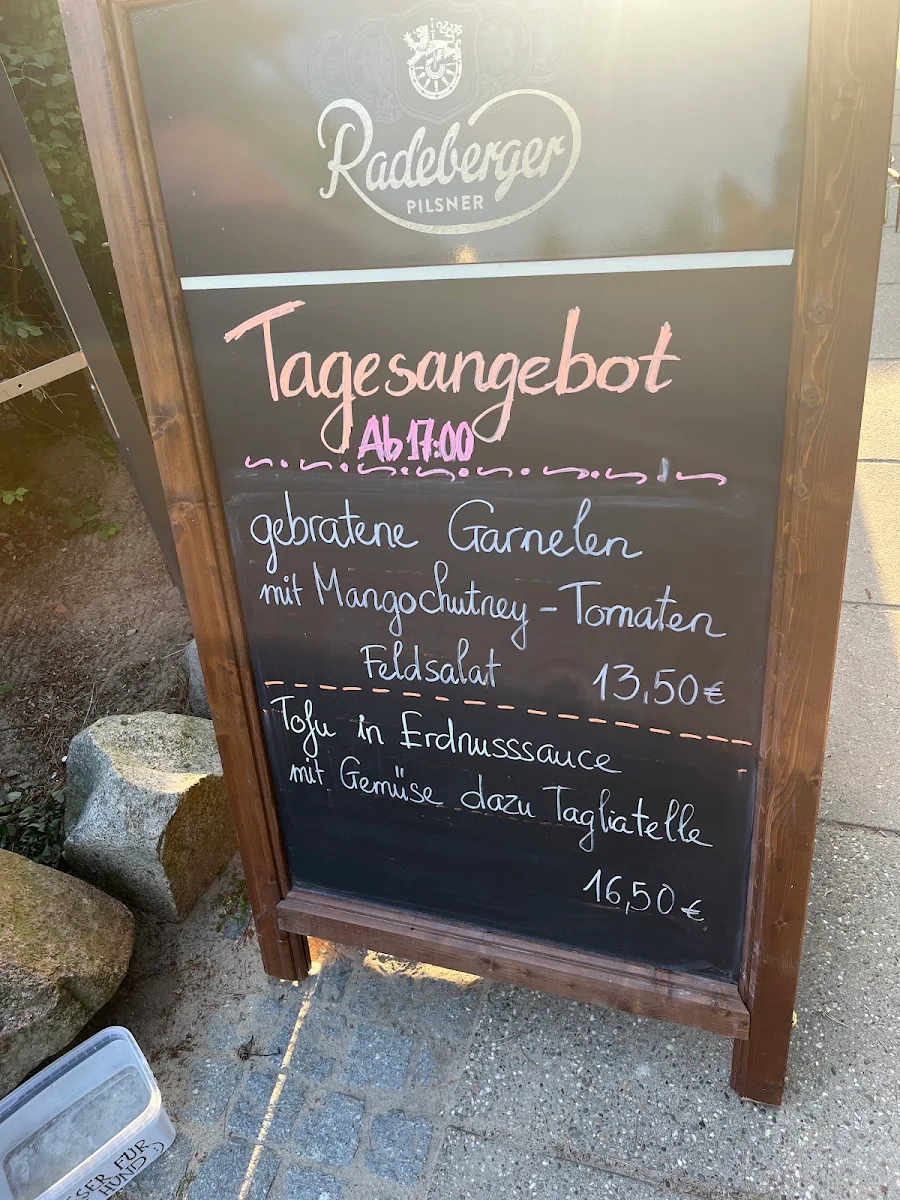 Radeberger
PILSNER
Tagesangebot
Ab 17:00
gebratene Garnelen
mit Mangochutney-Tomaten
Feldsalat 13,50€
Tofu in Erdnusssauce
mit Gemüse dazu Tagliatelle
16,50€
FÜR
HUND :)